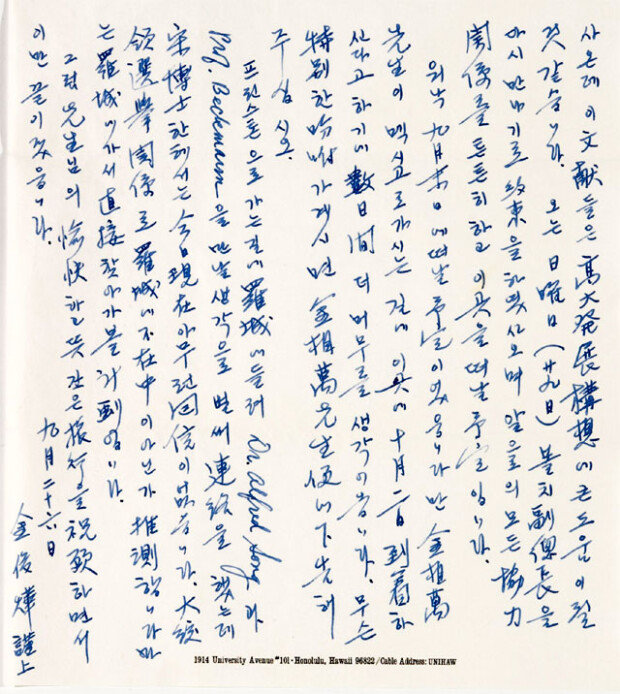 사온데 이 文献들은 高大発展構想에 큰 도움이 될
것 같습니다. 오는 日曜日(廿九日) 볼치 副總長을
다시 만나기로 約束을 하였사오며 앞으로의 모든 協力
関係를 튼튼히 하고 이곳을 떠날 予定입니다.
워낙 九月末日에 떠날 予定이었읍니다만 金相萬
先生이 멕시고로 가시는 길에 이곳에 十月二日 到着하
신다고 하기에 數日間 더 머무를 생각이옵니다. 무슨
特別한 가 계시면 金相萬先生便에 下告해
주십시오.
프린스톤으로 가는 길에 羅城에 들려 Dr. Alfred Song 과
Prof. Beckmann 을 만날 생각으로 벌써 連絡을 했는데
宋博士한테서는 今日現在 아무런 回信이 없읍니다. 大統
領選挙関係로 羅城에 不在中이 아닌가 推測합니다만
는 羅城에 가서 直接 찾아가 볼 計劃입니다.
그럼 先生님의 愉快하고 뜻 갚은 旅行을 祝願하면서
이만 끝이겠읍니다.
九月二十六日
金俊燁 謹上
1914 University Avenue #101 - Honolulu, Hawaii 96822 / Cable Address: UNIHAW